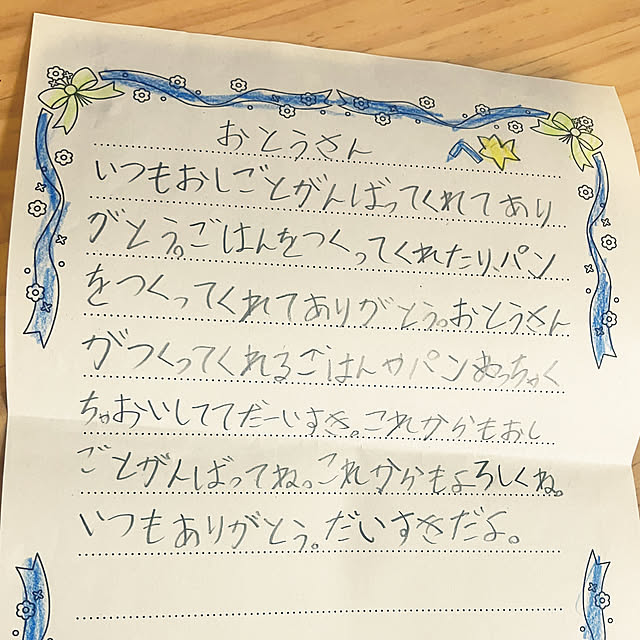 おとうさん へ
いつもおしごとがんばってくれてあり
がとう。ごはんをつくってくれたり、パン
をつくってくれてありがとう。おとうさん
がつくってくれるごはんやパンめっちゃく
ちゃおいしててだーいすき。これからもおし
ごとがんばってね。これからもよろしくね。
いつもありがとう。だいすきだよ。